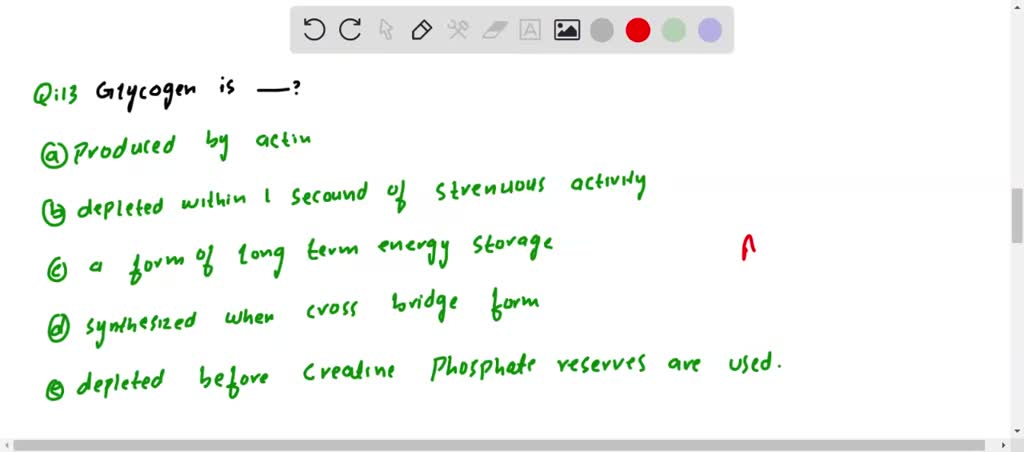 Q:13 Glycogen is —?
(a) Produced by actin
(b) depleted within 1 secound of strenuous activity
(c) a form of long term energy storage
(d) synthesized when cross bridge form
(e) depleted before Creatine Phosphate reserves are used.